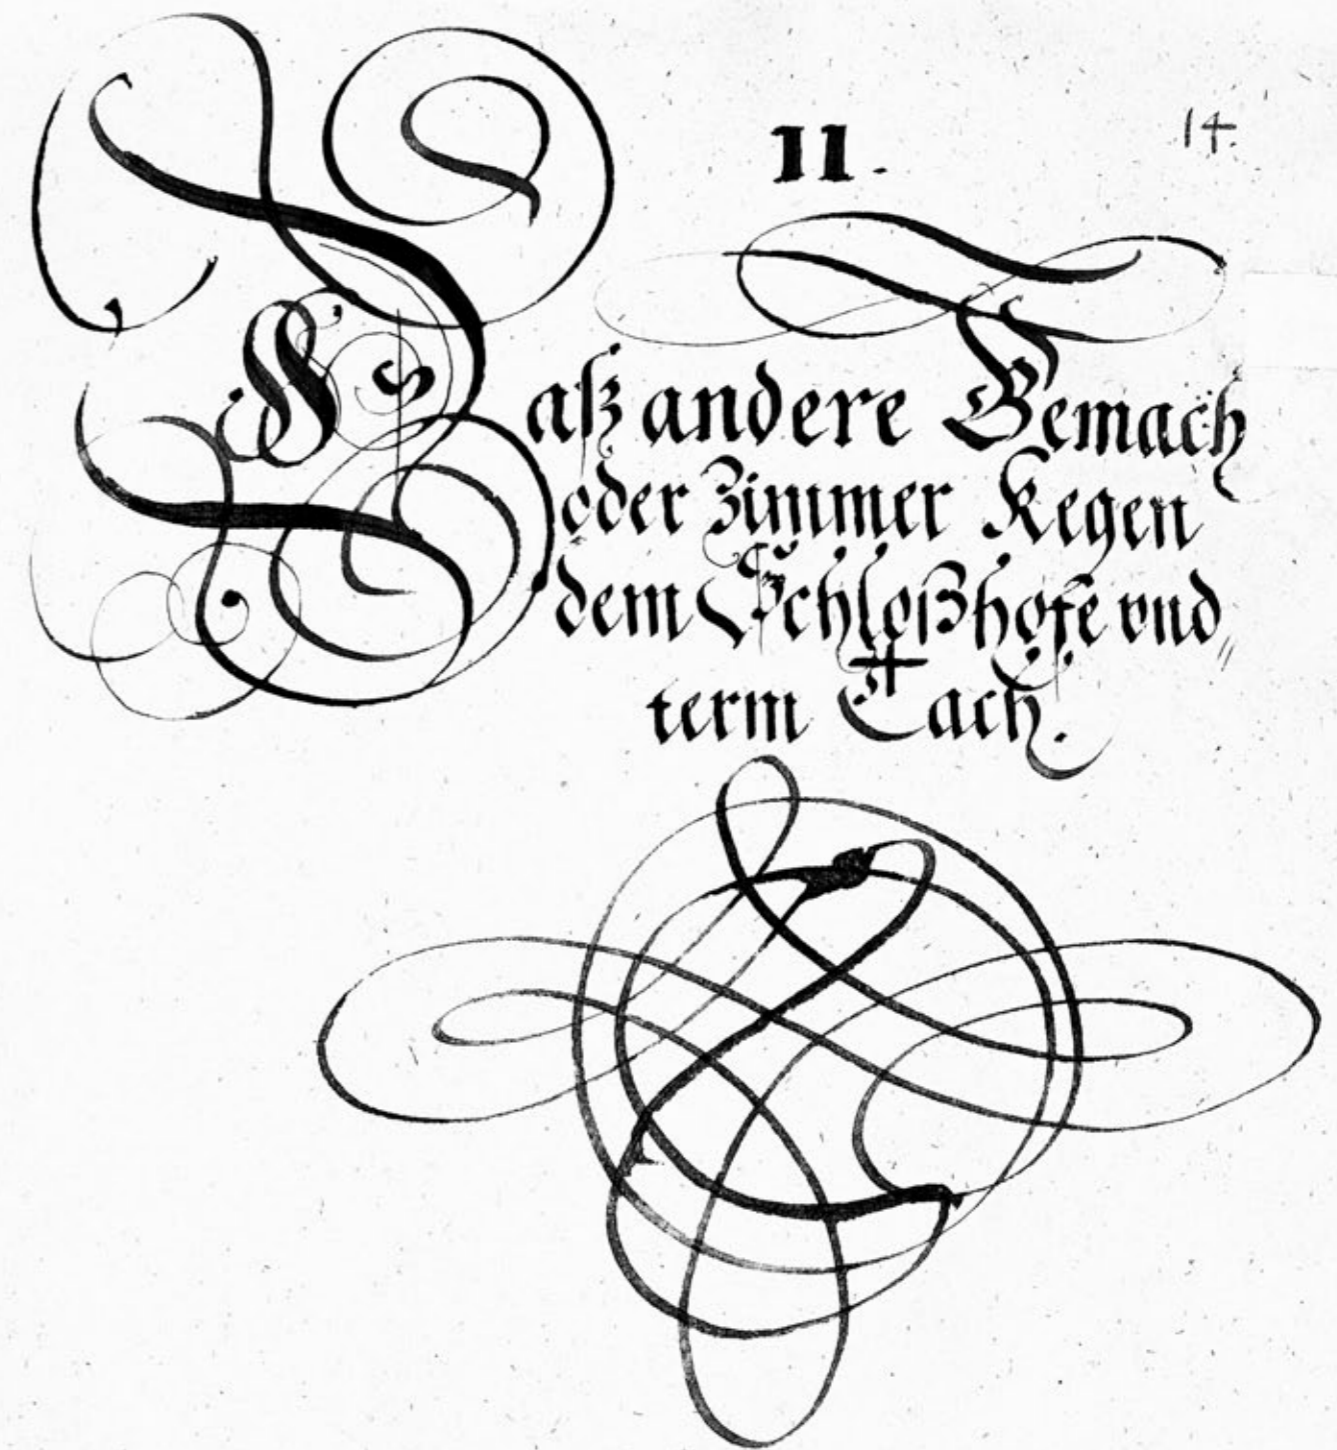 14.
II.
Daß andere Gemach
oder Zimmer Kegen
dem Schloßhofe vnd
term Tach.